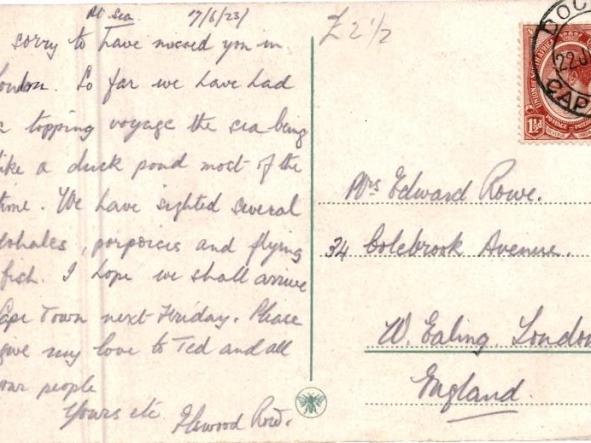 At Sea 17/6/23
sorry to have missed you in
London. So far we have had
a topping voyage the sea being
like a duck pond most of the
time. We have sighted several
whales, porpoises and flying
fish. I hope we shall arrive
Cape Town next Friday. Please
give my love to Ted and all
your people
Yours etc
£2½
DOC
22 J
CAP
1½d
Mrs Edward Rowe.
34 Colebrook Avenue.
W. Ealing. London
England.